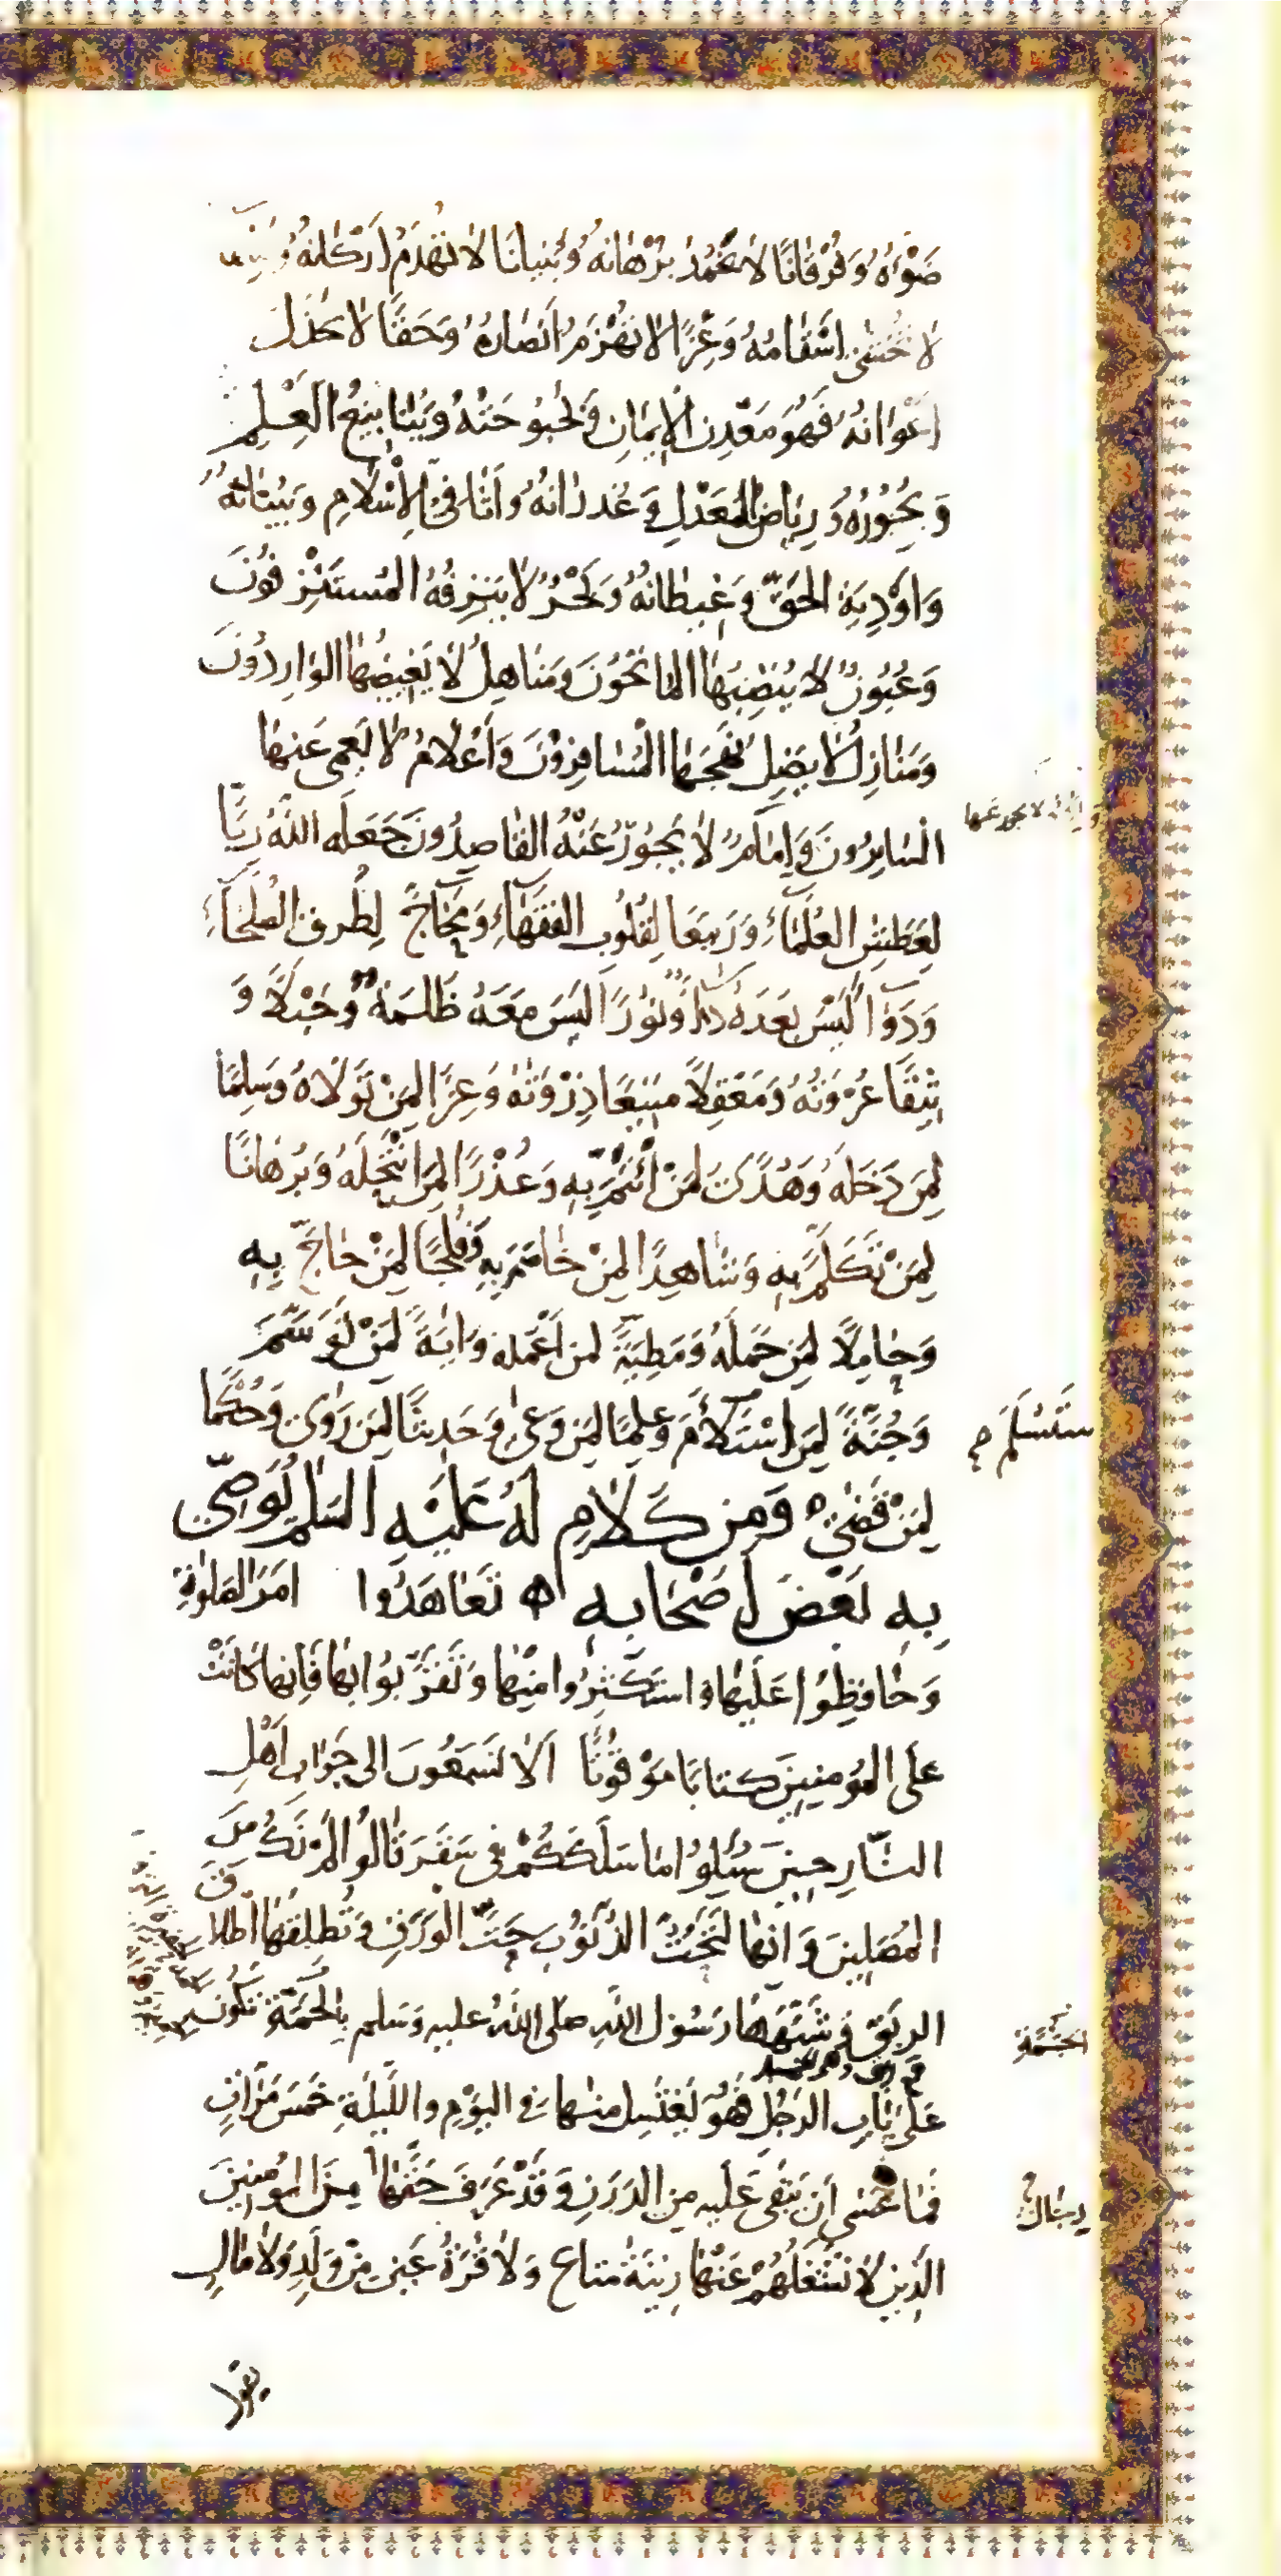 ضَوْءُهُ وَفُرْقَانًا لَا يَخْمُدُ بُرْهَانُهُ وَبُنْيَانًا لَا تُهْدَمُ أَرْكَانُهُ
لَا تُخْشَى أَسْقَامُهُ وَعِزًّا لَا تُهْزَمُ أَنْصَارُهُ وَحَقًّا لَا تُخْذَلُ
أَعْوَانُهُ فَهُوَ مَعْدِنُ الْإِيمَانِ وَبُحْبُوحَتُهُ وَيَنَابِيعُ الْعِلْمِ
وَبُحُورُهُ وَرِيَاضُ الْعَدْلِ وَغُدْرَانُهُ وَأَثَافِيُّ الْإِسْلَامِ وَبُنْيَانُهُ
وَأَوْدِيَةُ الْحَقِّ وَغِيطَانُهُ وَبَحْرٌ لَا يَنْزِفُهُ الْمُسْتَنْزِفُونَ
وَعُيُونٌ لَا يُنْضِبُهَا الْمَاتِحُونَ وَمَنَاهِلُ لَا يَغِيضُهَا الْوَارِدُونَ
وَمَنَازِلُ لَا يَضِلُّ نَهْجَهَا الْمُسَافِرُونَ وَأَعْلَامٌ لَا يَعْمَى عَنْهَا
السَّايِرُونَ وَإِمَامٌ لَا يَجُوزُ عَنْهُ الْقَاصِدُونَ جَعَلَهُ اللَّهُ رِيًّا
لِعَطَشِ الْعُلَمَاءِ وَرَبِيعًا لِقُلُوبِ الْفُقَهَاءِ وَمَحَاجَّ لِطُرُقِ الصُّلَحَاءِ
وَدَوَاءً لَيْسَ بَعْدَهُ دَاءٌ وَنُورًا لَيْسَ مَعَهُ ظُلْمَةٌ وَحَبْلًا وَ
ثِيقًا عُرْوَتُهُ وَمَعْقِلًا مَنِيعًا ذِرْوَتُهُ وَعِزًّا لِمَنْ تَوَلَّاهُ وَسِلْمًا
لِمَنْ دَخَلَهُ وَهُدًى لِمَنِ ائْتَمَّ بِهِ وَعُذْرًا لِمَنِ انْتَحَلَهُ وَبُرْهَانًا
لِمَنْ تَكَلَّمَ بِهِ وَشَاهِدًا لِمَنْ خَاصَمَ بِهِ وَفَلْجًا لِمَنْ حَاجَّ بِهِ
وَحَامِلًا لِمَنْ حَمَلَهُ وَمَطِيَّةً لِمَنْ أَعْمَلَهُ وَآيَةً لِمَنْ تَوَسَّمَ
وَجُنَّةً لِمَنِ اسْتَلْأَمَ وَعِلْمًا لِمَنْ وَعَى وَحَدِيثًا لِمَنْ رَوَى وَحُكْمًا
لِمَنْ قَضَى ه وَمِن كَلَامٍ لَهُ عَلَيْهِ السَّلَم يُوَصِّي
بِهِ بَعْضَ أَصْحَابِهِ ه تَعَاهَدُوا أَمْرَ الصَّلَوٰةِ
وَحَافِظُوا عَلَيْهَا وَاسْتَكْثِرُوا مِنْهَا وَتَقَرَّبُوا بِهَا فَإِنَّهَا كَانَتْ
عَلَى الْمُؤْمِنِينَ كِتَابًا مَوْقُوتًا أَلَا تَسْمَعُونَ إِلَى جَوَابِ أَهْلِ
النَّارِ حِينَ سُئِلُوا مَا سَلَكَكُمْ فِي سَقَرَ قَالُوا لَمْ نَكُ مِنَ
الْمُصَلِّينَ وَإِنَّهَا لَتَحُتُّ الذُّنُوبَ حَتَّ الْوَرَقِ وَتُطْلِقُهَا إِطْلَاقَ
الرِّبَقِ وَشَبَّهَهَا رَسُولُ اللَّهِ صَلَّى اللَّهُ عَلَيْهِ وَسَلَّمَ بِالْحَمَّةِ تَكُونُ
عَلَى بَابِ الرَّجُلِ فَهُوَ يَغْتَسِلُ مِنْهَا فِي الْيَوْمِ وَاللَّيْلَةِ خَمْسَ مَرَّاتٍ
فَمَا عَسَى أَنْ يَبْقَى عَلَيْهِ مِنَ الدَّرَنِ وَقَدْ عَرَفَ حَقَّهَا مِنَ الْمُؤْمِنِينَ
الَّذِينَ لَا تَشْغَلُهُمْ عَنْهَا زِينَةُ مَتَاعٍ وَلَا قُرَّةُ عَيْنٍ مِنْ وَلَدٍ وَلَا مَالٍ
رِجَالٌ
يقول